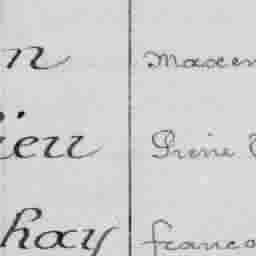 n Maxen
ieu Irène
hay franco